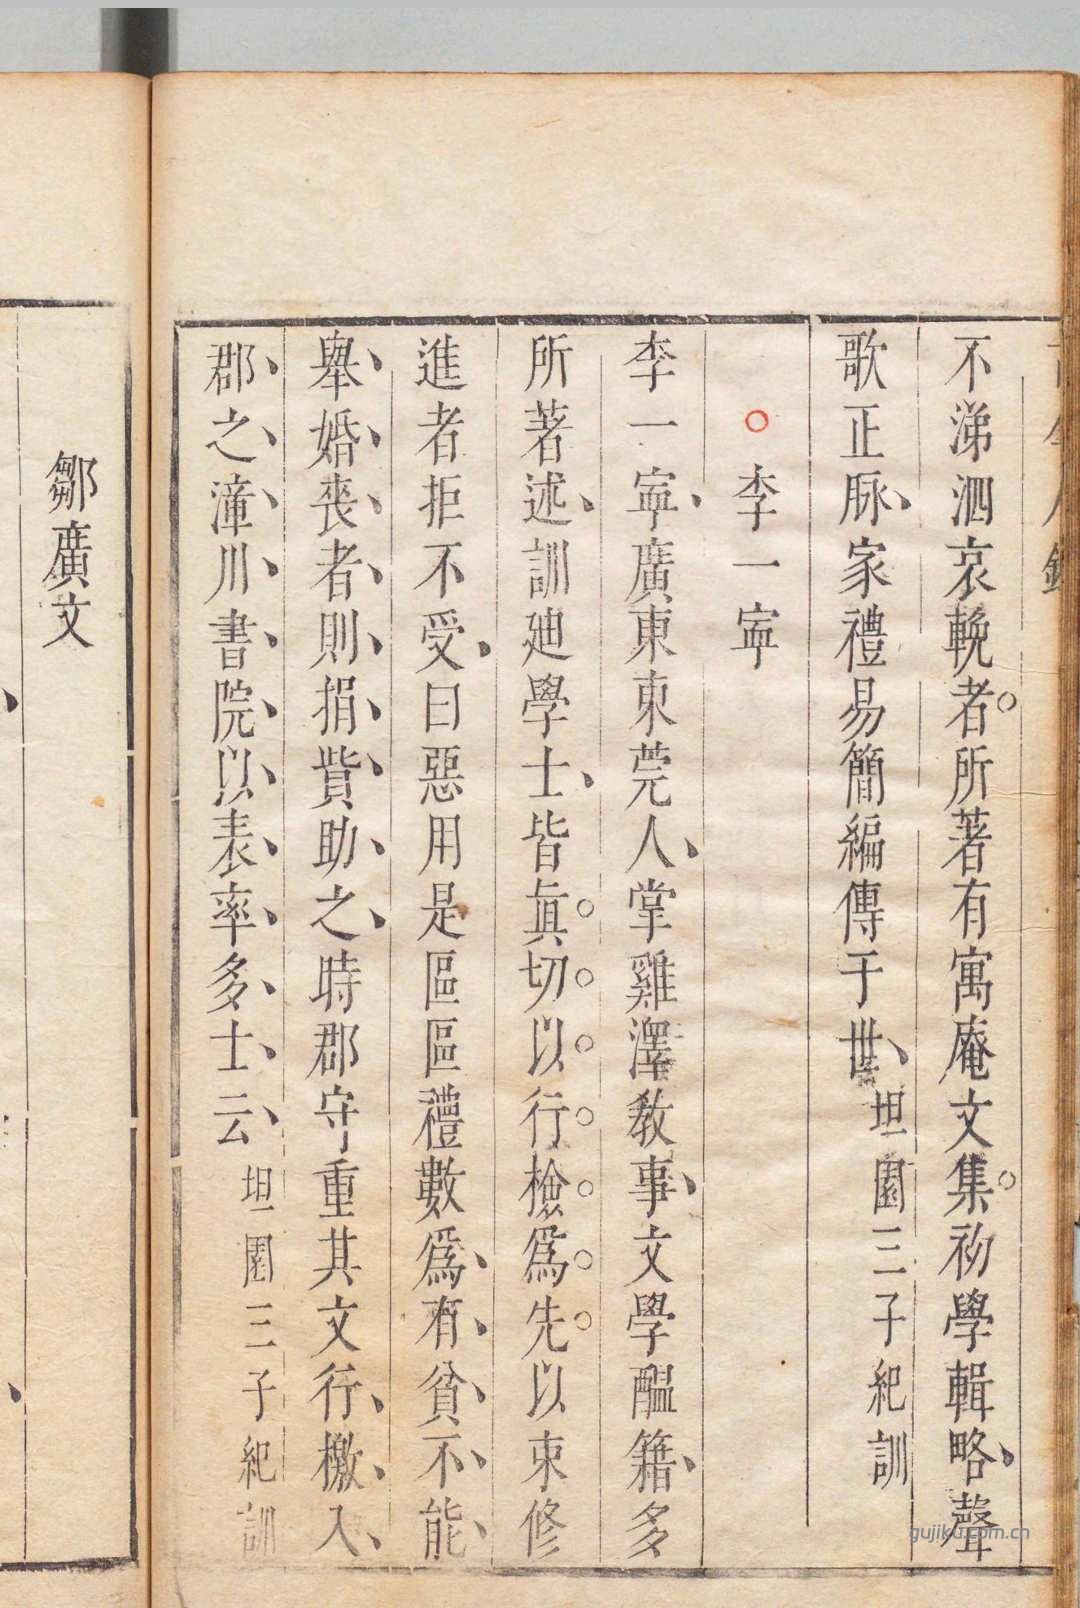 不涕泗哀輓者所著有寓庵文集初學輯略聲
歌正脉家禮易簡編傳于世坦園三子紀訓
李一寧
李一寧廣東東莞人掌雞澤教事文學醞籍多
所著述訓廸學士皆眞切以行檢爲先以束修
進者拒不受曰惡用是區區禮數爲有貧不能
舉婚喪者則捐貲助之時郡守重其文行檄入
郡之漳川書院以表率多士云坦園三子紀訓
鄒廣文
gujiku.com.cn